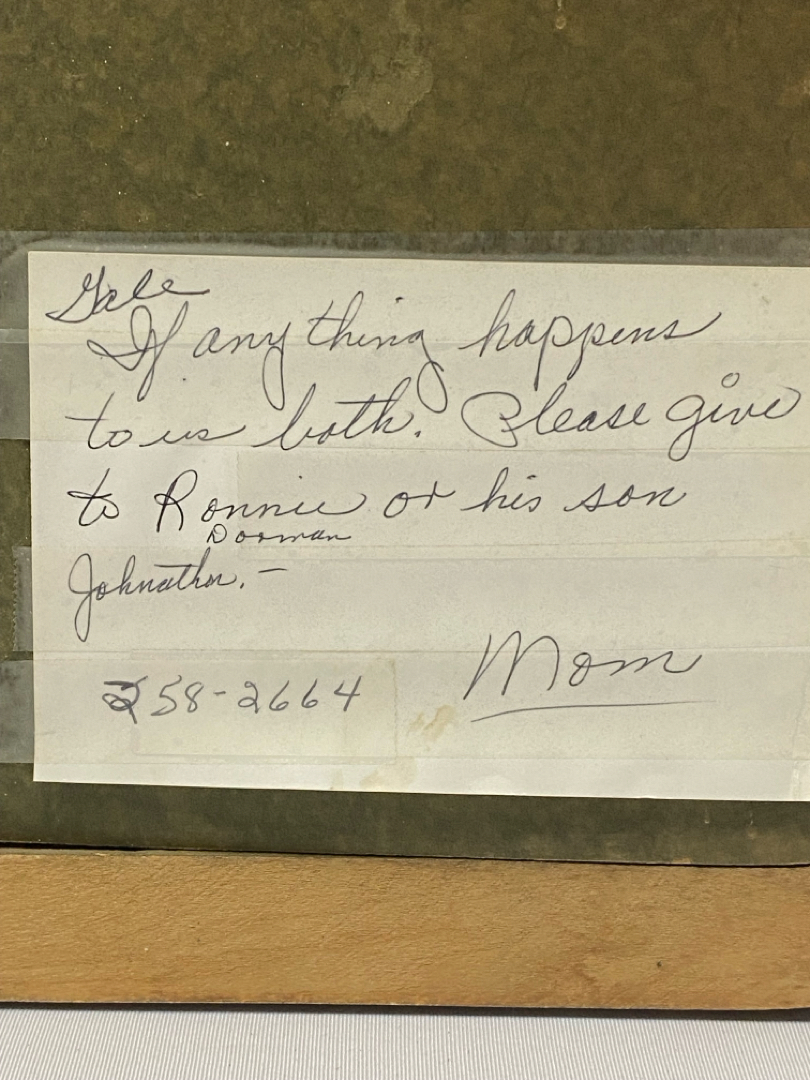 Gale
If any thing happens
to us both. Please give
to Ronnie or his son
Dorman
Johnathn. –
258-2664
Mom